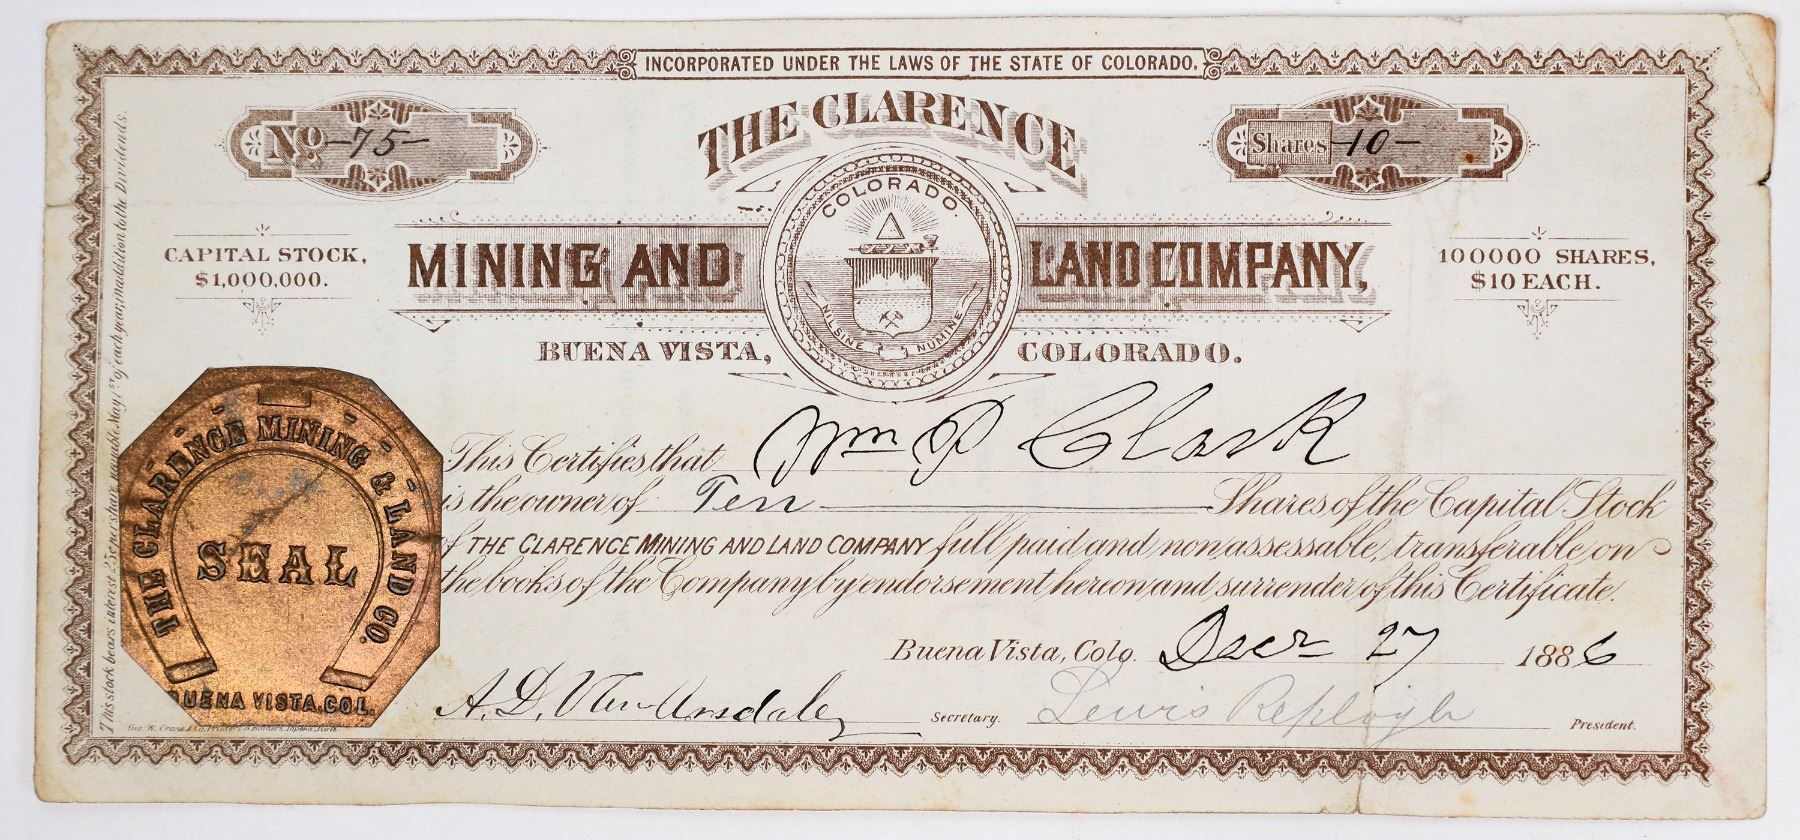 INCORPORATED UNDER THE LAWS OF THE STATE OF COLORADO.
No. -75-
THE CLARENCE
Shares -10-
COLORADO.
NIL SINE NUMINE
CAPITAL STOCK,
$1,000,000.
MINING AND LAND COMPANY,
100000 SHARES,
$10 EACH.
BUENA VISTA, COLORADO.
This Certifies that Wm P Clark
is the owner of Ten Shares of the Capital Stock
of THE CLARENCE MINING AND LAND COMPANY full paid and non assessable, transferable on
the books of the Company by endorsement hereon and surrender of this Certificate.
Buena Vista, Colo. Decr 27 1886
A. D. Van Arsdale, Secretary. Lewis Replogle President.
THE CLARENCE MINING & LAND CO.
SEAL
BUENA VISTA, COL.
Geo. W. Crane & Co. Printers & Binders, Topeka, Kans
This stock bears interest 25c per share payable May 1st of each year in addition to the Dividends.